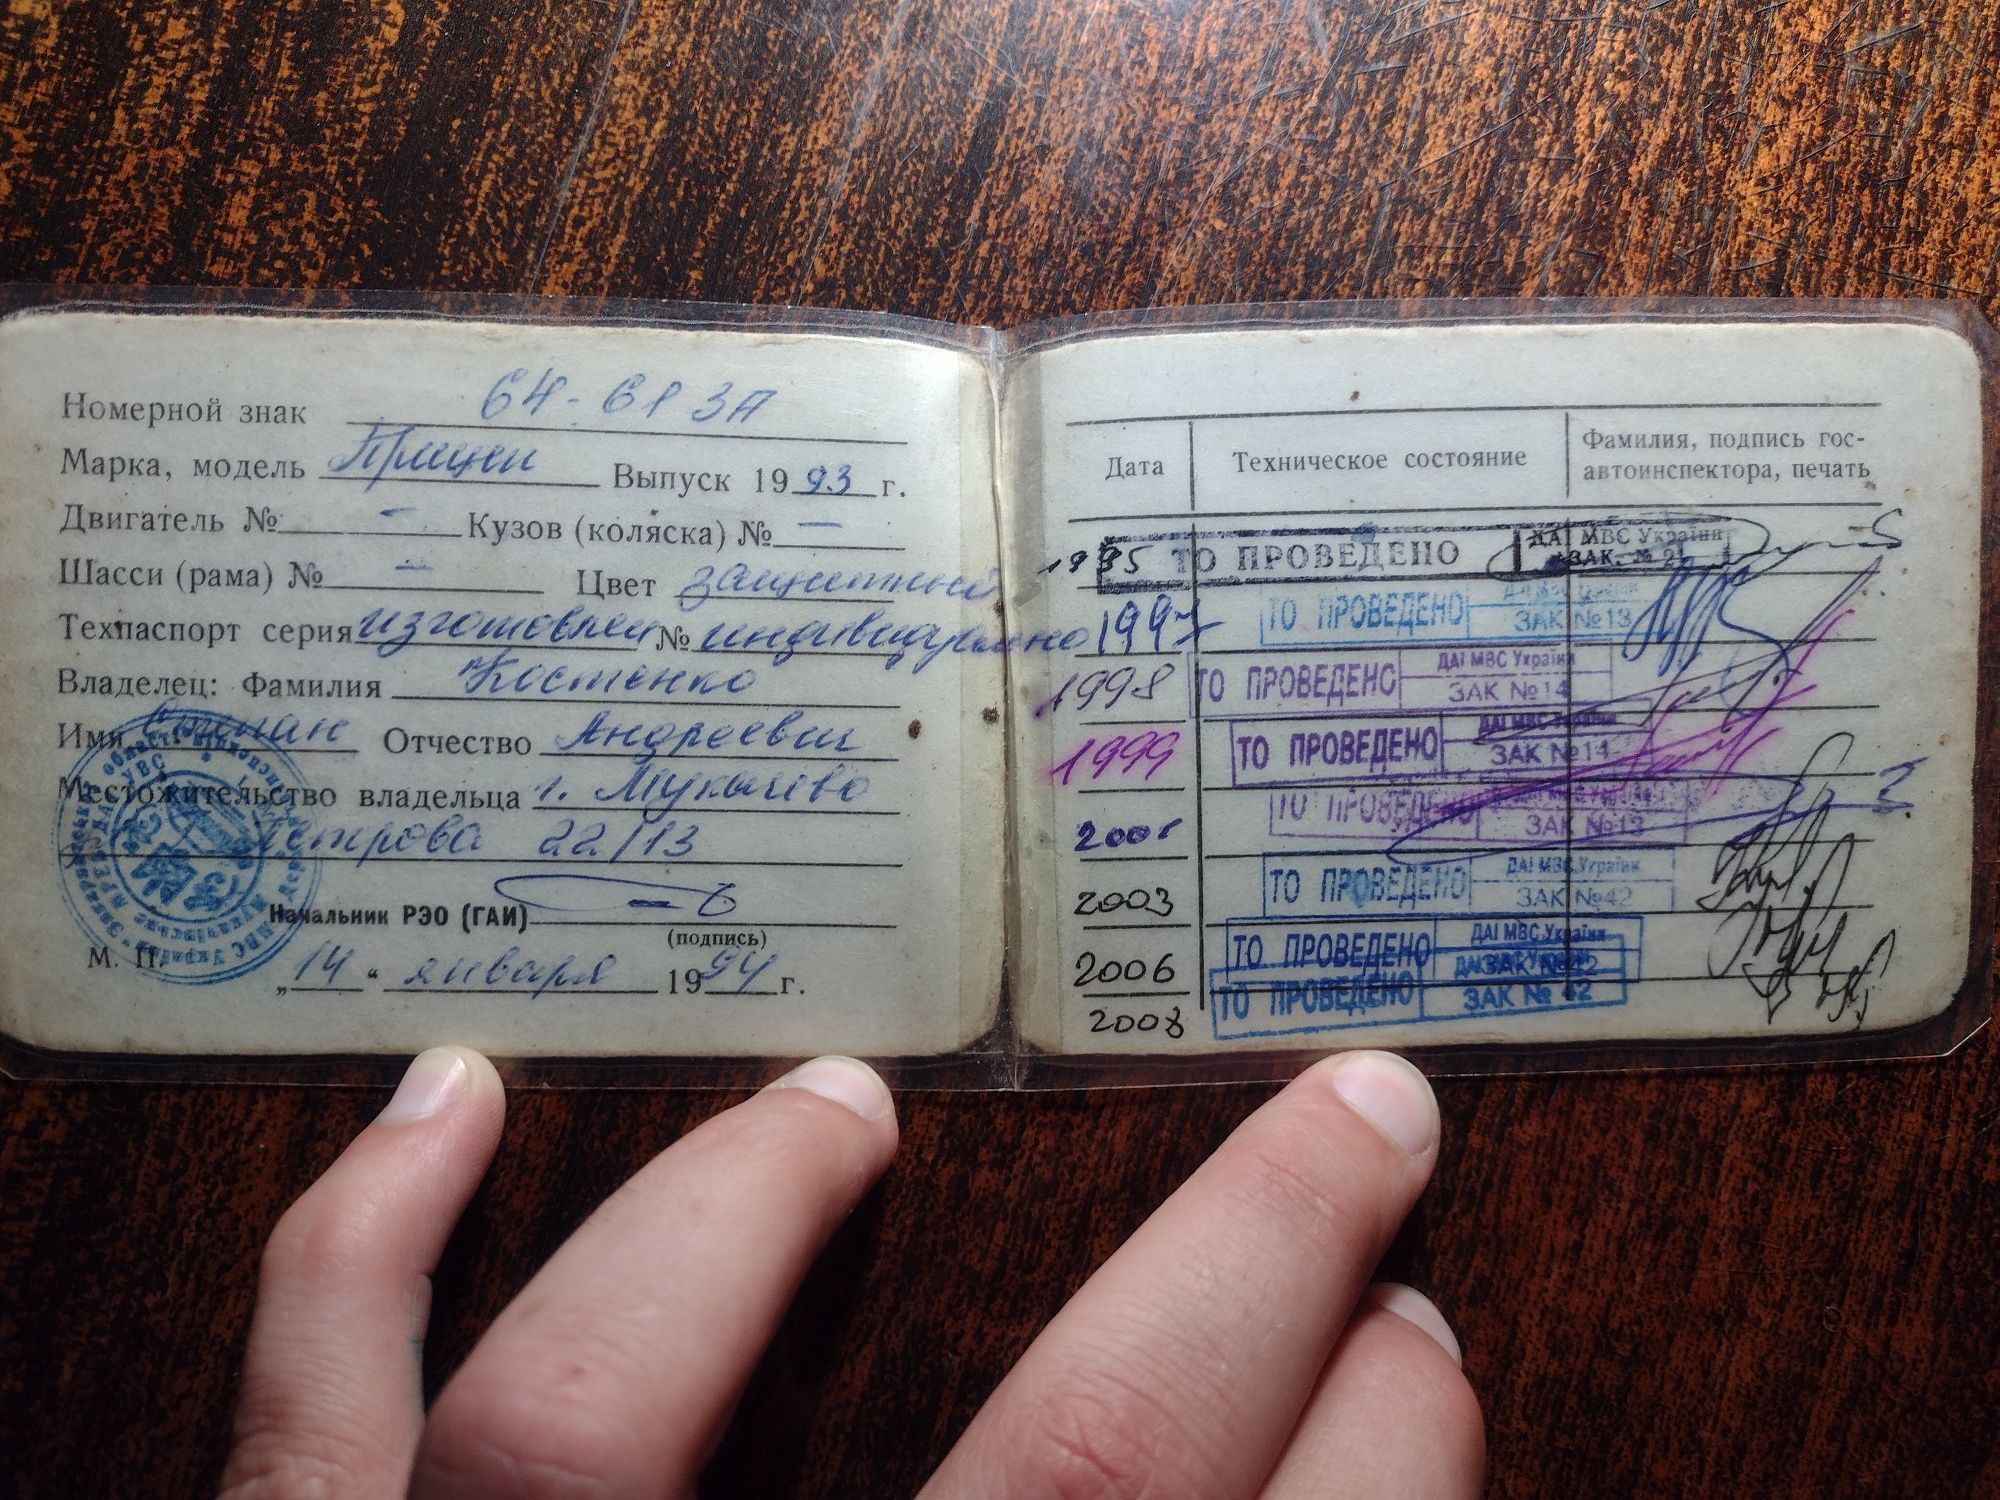 Номерной знак 64-61 ЗА
Марка, модель Прицеп Выпуск 1993 г.
Двигатель № - Кузов (коляска) № -
Шасси (рама) № - Цвет защитный
Техпаспорт серия изготовлен № индивидуально
Владелец: Фамилия Костенко
Имя Степан Отчество Андреевич
Местожительство владельца г. Мукачево
Петрова 22/13
Начальник РЭО (ГАИ)
(подпись)
М. П.
„14“ января 1994 г.
Дата Техническое состояние Фамилия, подпись гос-
автоинспектора, печать
1995 ТО ПРОВЕДЕНО ДАІ МВС України
ЗАК. № 2
1997 ТО ПРОВЕДЕНО ДАІ МВС України
ЗАК №13
1998 ТО ПРОВЕДЕНО ДАІ МВС України
ЗАК №14
1999 ТО ПРОВЕДЕНО ДАІ МВС України
ЗАК №14
2001 ТО ПРОВЕДЕНО ДАІ МВС України
ЗАК №13
2003 ТО ПРОВЕДЕНО ДАІ МВС України
ЗАК №42
2006 ТО ПРОВЕДЕНО ДАІ МВС України
ЗАК №42
2008 ТО ПРОВЕДЕНО ДАІ МВС України
ЗАК № 42